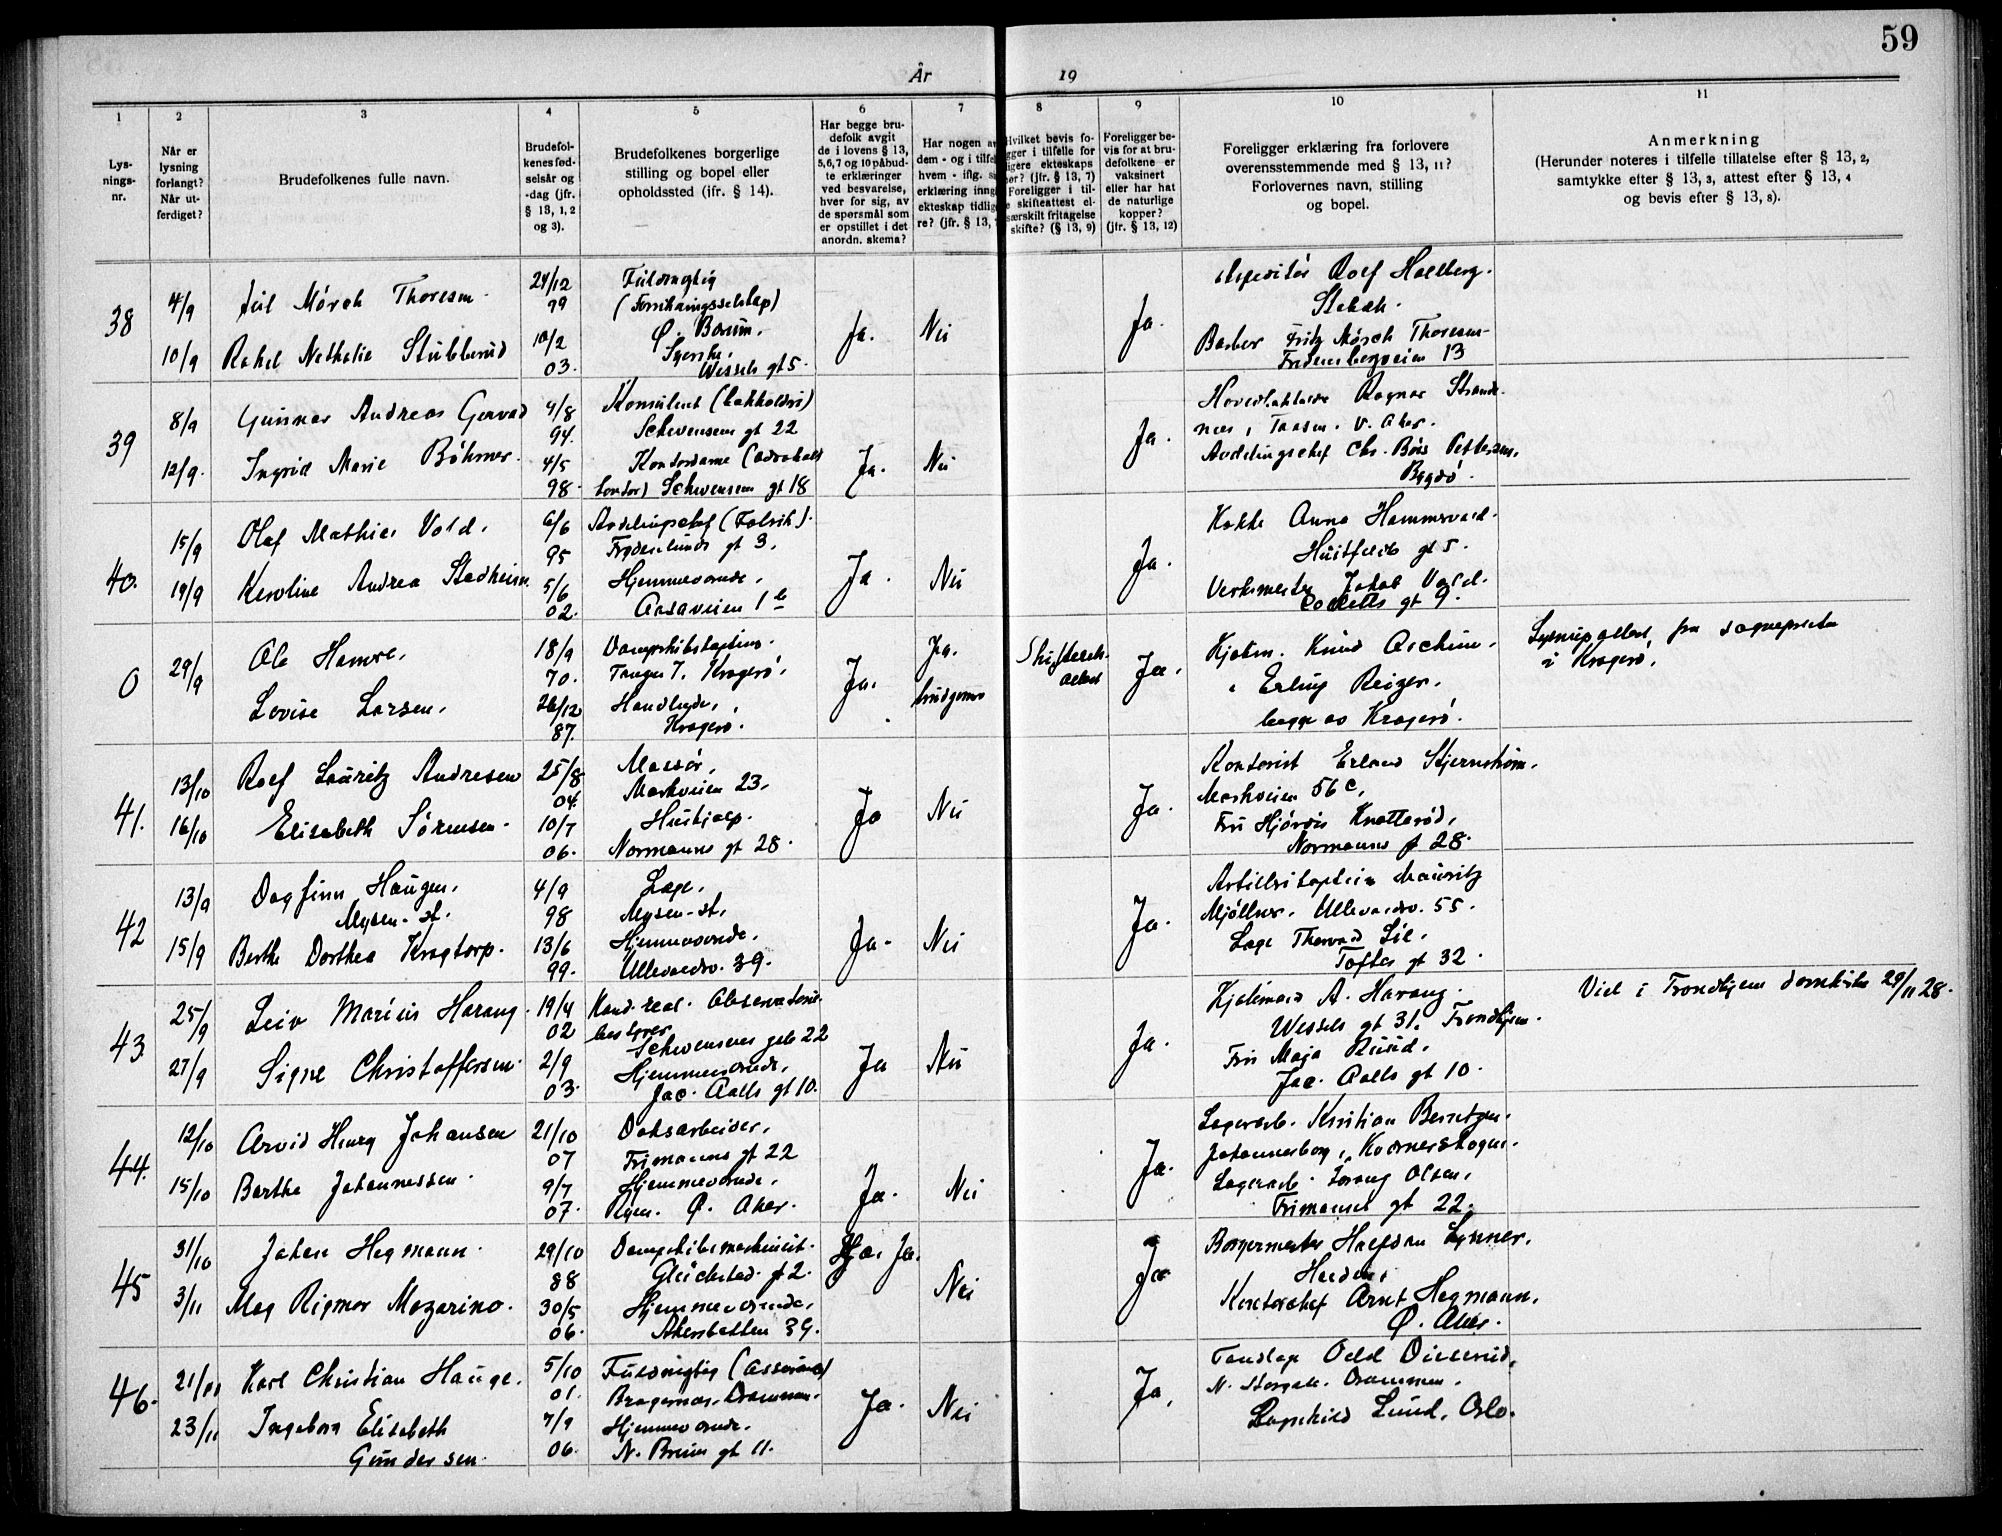 59
År 19
1 2 3 4 5 6 7 8 9 10 11
Lys-
nings-
nr.
Når er
lysning
forlangt?
Når ut-
ferdiget?
Brudefolkenes fulle navn.
Brudefol-
kenes fød-
selsår og
-dag (jfr.
§ 13, 1, 2
og 3).
Brudefolkenes borgerlige
stilling og bopel eller
opholdssted (ifr. § 14).
Har begge bru-
defolk avgit
de i lovens § 13,
5,6,7 og 10 påbud-
te erklæringer
ved besvarelse,
hver for sig, av
de spørsmål som
er opstillet i det
anordn. skema?
Har nogen
dem - og i tilfel
hvem - iflg.
erklæring inng
ekteskap tidlig
re? (jfr. § 13,
Hvilket bevis fo-
gger i tilfelle for
ligere ekteskaps
? (jfr. § 13, 7)
Foreligger i til-
e skifteattest el-
særskilt fritagelse
skifte? (§ 13, 9)
Foreligger be-
vis for at bru-
defolkene er
vaksinert
eller har hat
de naturlige
kopper?
(jfr. § 13, 12)
Foreligger erklæring fra forlovere
overensstemmende med § 13, 11?
Forlovernes navn, stilling
og bopel.
Anmerkning
(Herunder noteres i tilfelle tillatelse efter § 13, 2,
samtykke efter § 13, 3, attest efter § 13, 4
og bevis efter § 13, 8).
38
4/9
10/9
Mörch Thoresen
Rakel Nathalie Stubberud
24/12
99
10/2
03.
Fuldmegtig
(Forsikringsselskap)
Ø. Bærum.
Syerske.
Wessels gt 5.
Ja.
Nei
Ja.
Ekspeditör Rolf Hallberg.
Stabæk.
Barber Fritz Mörch Thoresen
Fredensborgveien 13
39
8/9
12/9.
Gunnar Andreas Gervad
Ingrid Marie Böhmer.
4/8
94.
4/5
98.
Konsulent
Schwensens gt 22
Kontordame (advokat
kontor) Schwensens gt 18
Ja.
Nei
Ja.
Ragnar Strande
nes, Taasen. V. Aker.
Avdelingschef Chr. Pettersen,
Bygdö.
40.
15/9
19/9
Olaf Mathias Vold.
Karoline Andrea Stadheim.
6/6
95
5/6
02.
Avdelingschef (Fabrik).
Frydenlunds gt 3.
Hjemmeværende.
Aasaveien 1b
Ja.
Nei
Ja.
Kokke Anna Hammervold.
Huitfeldts gt 5.
Verksmester Jakob Vold.
Colletts gt 9.
0
29/9
Ole Hamre.
Lovise Larsen.
18/9
70.
26/12
87.
Dampskibskaptein.
Tangen 7. Kragerö.
Handlende,
Kragerö.
Ja.
Ja.
brudgommen
Skifterets-
attest
Ja.
Kjøbm. Knud
" Erling Reizer.
begge av Kragerö.
Lysningsattest fra sognepresten
i Kragerö.
41.
13/10
16/10
Rolf Lauritz Andresen
Elisabeth Sörensen.
25/8
04.
10/7
06.
Massör,
Markveien 23.
Hushjælp.
Normanns gt 28.
Ja
Nei
Ja.
Kontorist Erland Stjernström.
Markveien 56c,
Fru Hjördis Knatteröd,
Normanns gt 28.
42
13/9
15/9
Dagfinn Haugen.
Mysen-st.
Berthe Dorthea Krogtorp.
4/9
98
13/6
99.
Læge.
Mysen-st.
Hjemmeværende.
Ullevaalsv. 39.
Ja.
Nei
Ja.
Artillerikaptein Mauritz
Mjöllner. Ullevaalsv. 55.
Læge Thorvald Lie.
Toftes gt 32.
43
25/9
27/9
Leiv Marius Harang.
Signe Christoffersen.
19/4
02
2/9
03.
Kand. real. Observatorie-
bestyrer
Schwensens gate 22
Hjemmeværende,
Jac. Aalls gt 10.
Ja
Nei
Ja.
Kjøbmand A. Harang.
Wessels gt 31. Trondhjem.
Fru Maja Ruud.
Jac. Aalls gt 10.
Viet i Trondhjem domkirke 29/11 28.
44.
12/10
15/10
Arvid Henry Johansen
Berthe Johannessen.
21/10
07
9/7
07.
Doksarbeider.
Frimanns gt 22
Hjemmeværende.
Ryen. Ø. Aker.
Ja.
Nei
Ja.
Lagerarb. Kristian Berntzen.
Johannesborg, Kværnerskogen.
Lagerarb. Olsen,
Frimanns gt 22.
45
31/10
3/11
Johan Hegmann.
Mag Rigmor Mozarino.
29/10
88
30/5
06.
Dampskibsmaskinist.
Glückstad. gt 2.
Hjemmeværende.
Akersbakken 39.
Ja.
Nei
Ja
Borgermester Halfdan Lynner.
Halden,
Kontorchef Arnt Hegmann.
Ø. Aker.
46.
21/11
23/11
Karl Christian Hauge.
Ingeborg Elisabeth
Gundersen.
5/10
01.
7/9
06.
Fuldmegtig (assurance)
Bragernes, Drammen.
Hjemmeværende.
N. Bruun gt 11.
Ja.
Nei
Ja.
Tandlæge Odd
N. Storgate. Drammen.
Ragnhild Lund, Oslo.